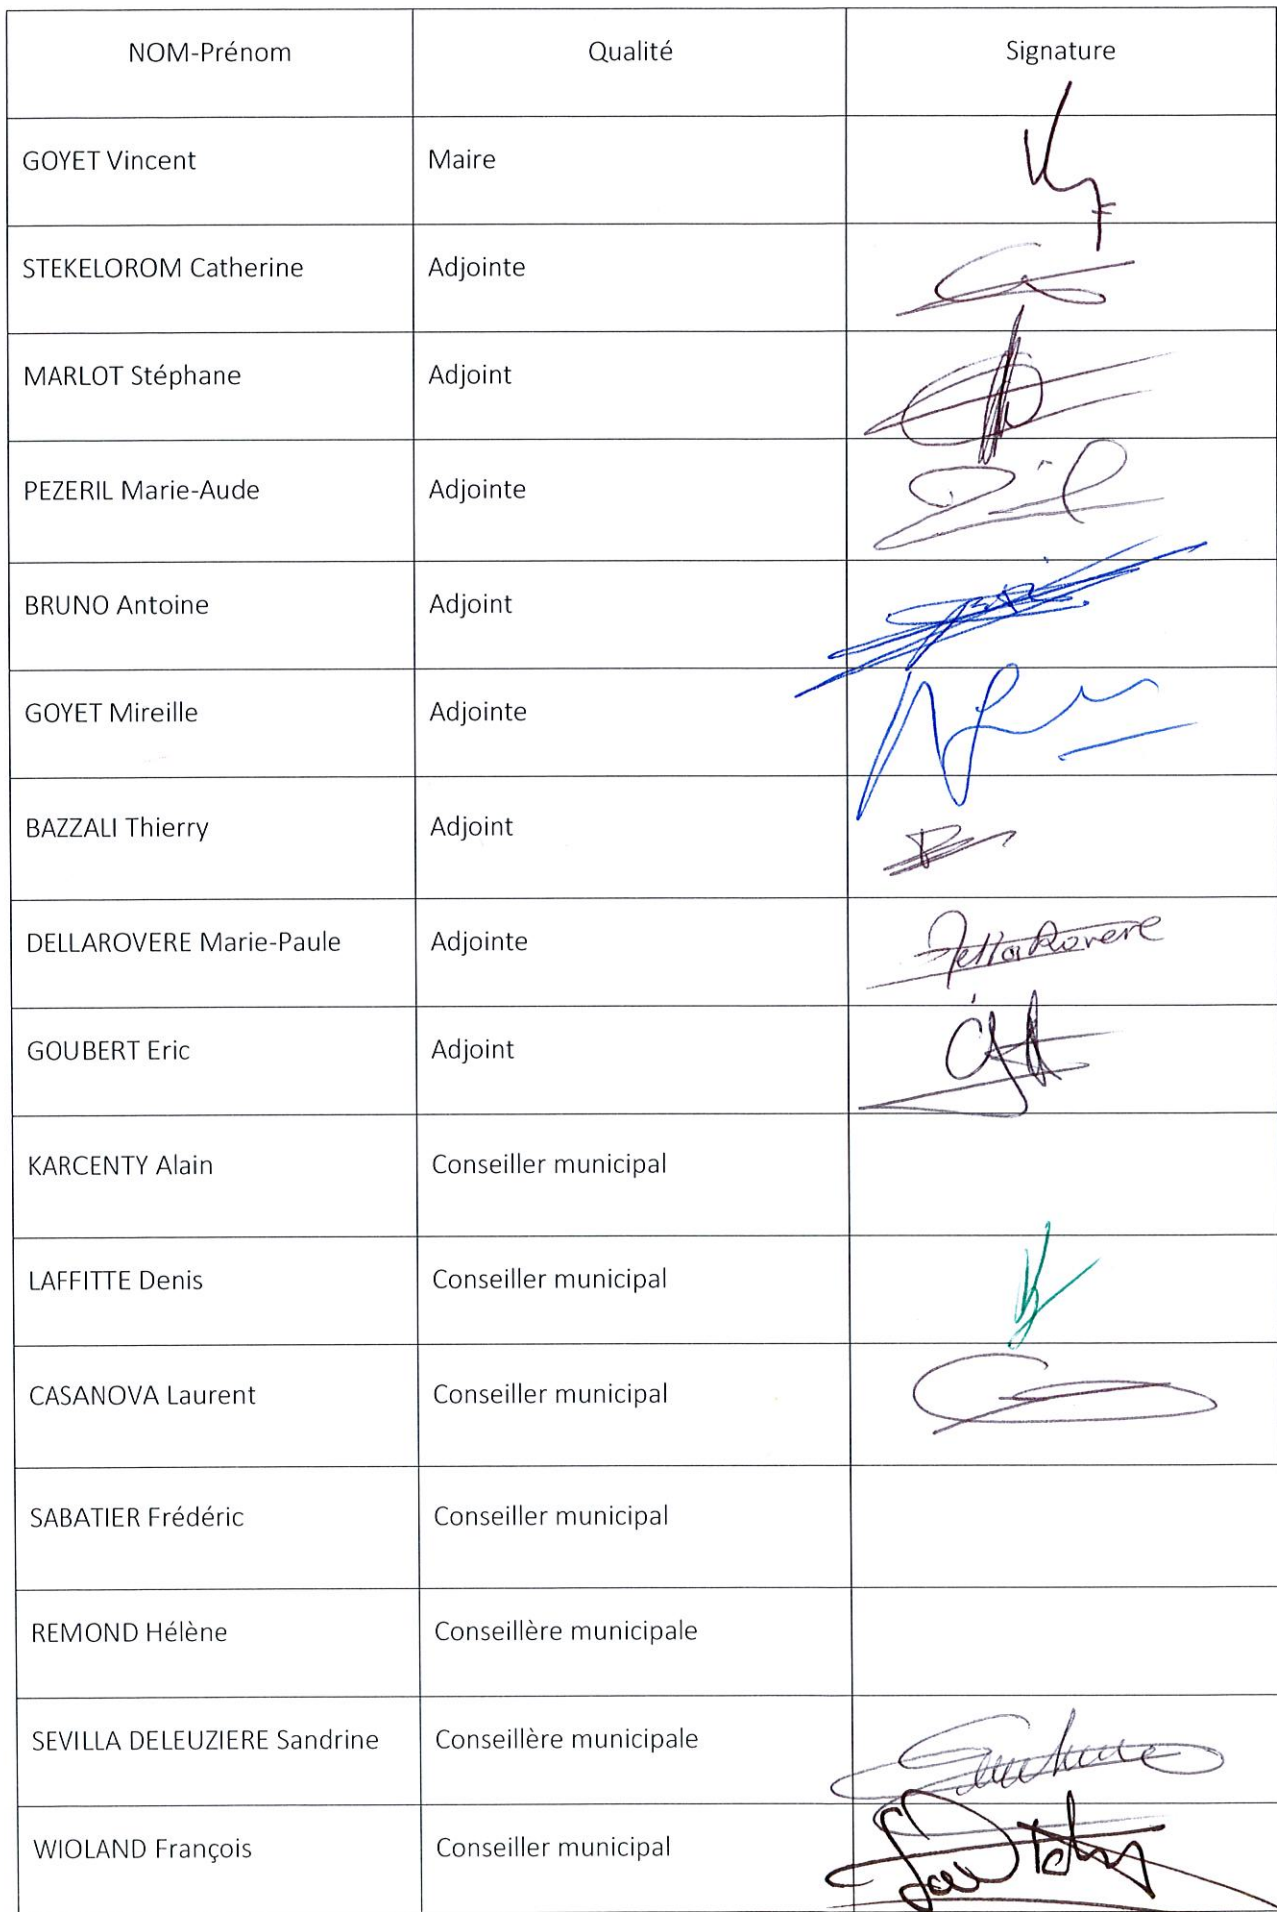 NOM-Prénom Qualité Signature
GOYET Vincent Maire
STEKELOROM Catherine Adjointe
MARLOT Stéphane Adjoint
PEZERIL Marie-Aude Adjointe
BRUNO Antoine Adjoint
GOYET Mireille Adjointe
BAZZALI Thierry Adjoint
DELLAROVERE Marie-Paule Adjointe DellaRovere
GOUBERT Eric Adjoint
KARCENTY Alain Conseiller municipal
LAFFITTE Denis Conseiller municipal
CASANOVA Laurent Conseiller municipal
SABATIER Frédéric Conseiller municipal
REMOND Hélène Conseillère municipale
SEVILLA DELEUZIERE Sandrine Conseillère municipale
WIOLAND François Conseiller municipal